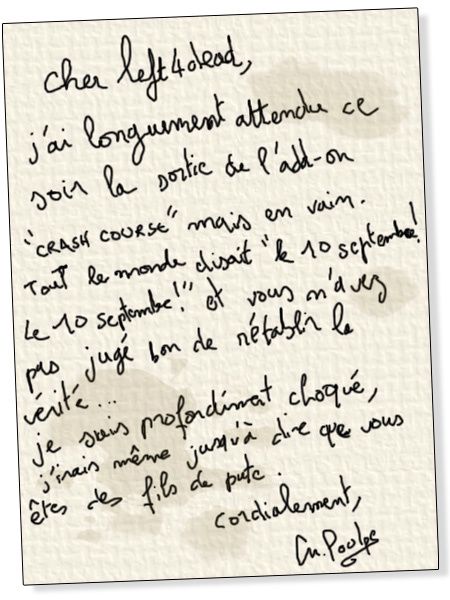 cher left4dead,
j'ai longuement attendu ce
soir la sortie de l'add-on
"CRASH COURSE" mais en vain.
Tout le monde disait "le 10 septembre!
Le 10 septembre!" et vous n'avez
pas jugé bon de rétablir la
vérité...
je suis profondément choqué,
j'irais même jusqu'à dire que vous
êtes des fils de pute.
cordialement,
Cm.Poulps